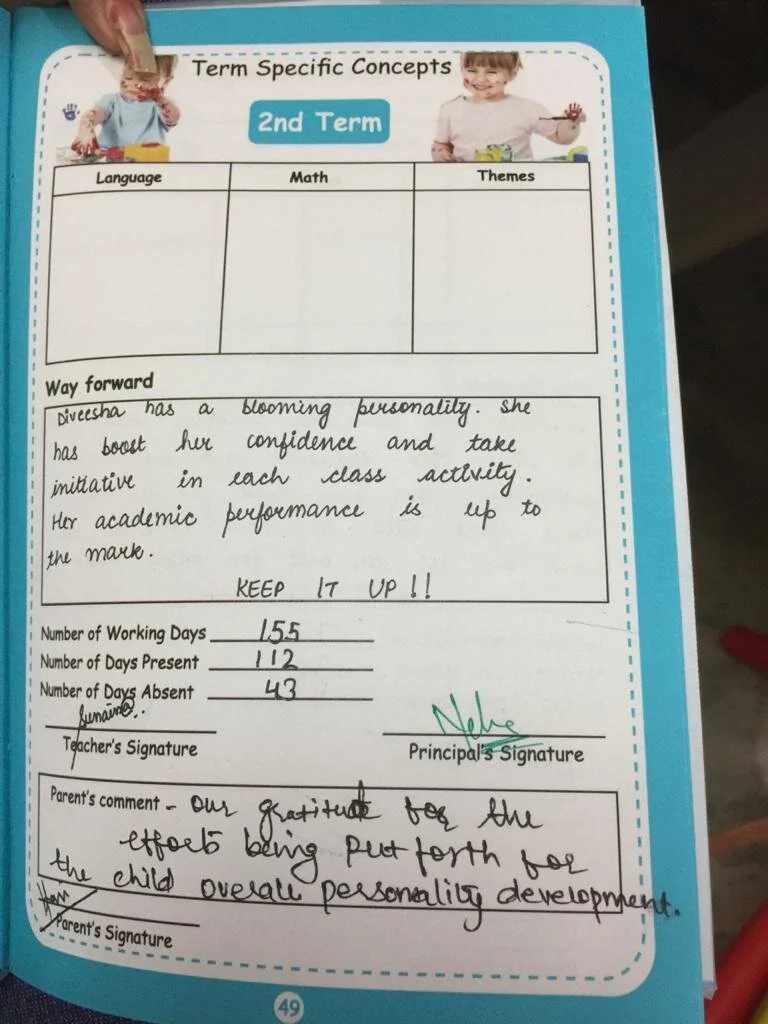 Term Specific Concepts
2nd Term
Language Math Themes
Way forward
Diveesha has a blooming personality. She
has boost her confidence and take
initiative in each class activity.
Her academic performance is up to
the mark.
KEEP IT UP!!
Number of Working Days 155
Number of Days Present 112
Number of Days Absent 43
Sunaina..
Teacher's Signature
Neha
Principal's Signature
Parent's comment - Our gratitude for the
efforts being put forth for
the child overall personality development.
Parent's Signature
49